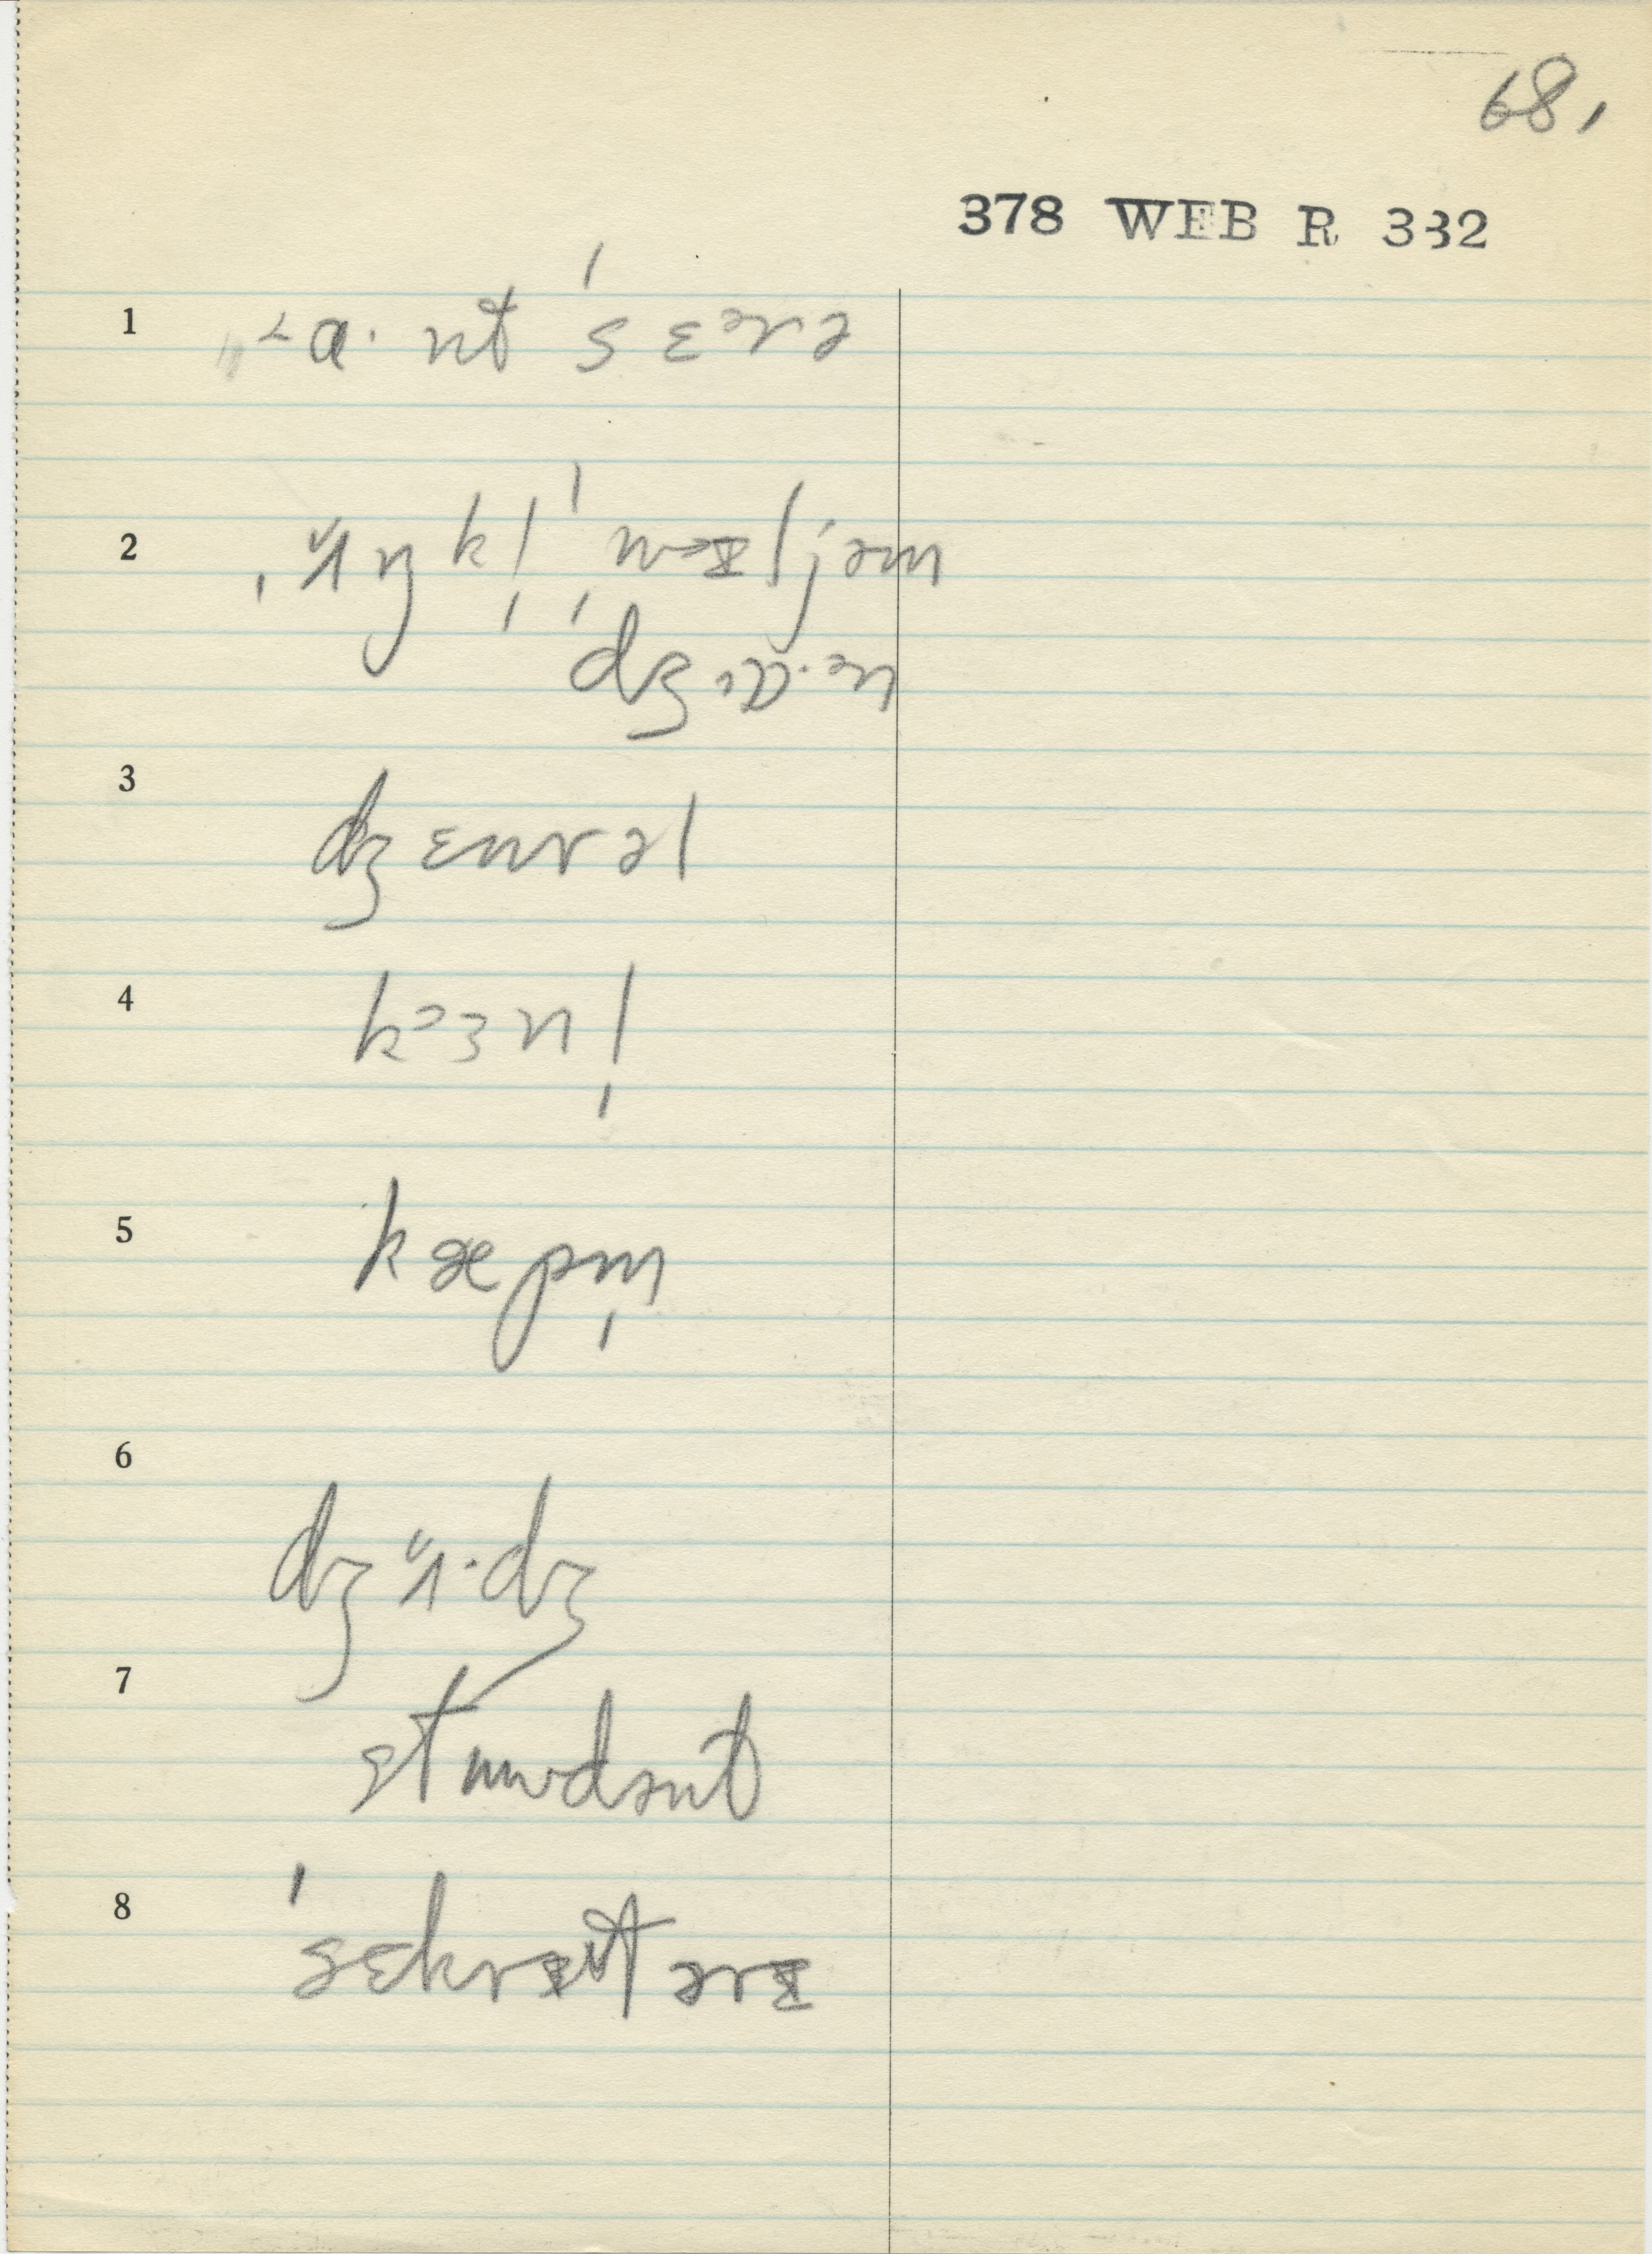 68,
378 WEB R 332
1 a· nt ˈsɛᵊrə
2 ˌʌ̆ŋkl̩ ˈwɪljəm
ˈdʒɒ·ən
3 dʒɛnrəl
4 kᵊɜnl̩
5 kæpm̩
6 dʒʌ̆·dʒ
7 stɯudənt
8 ˈsɛkrɪtərɪ